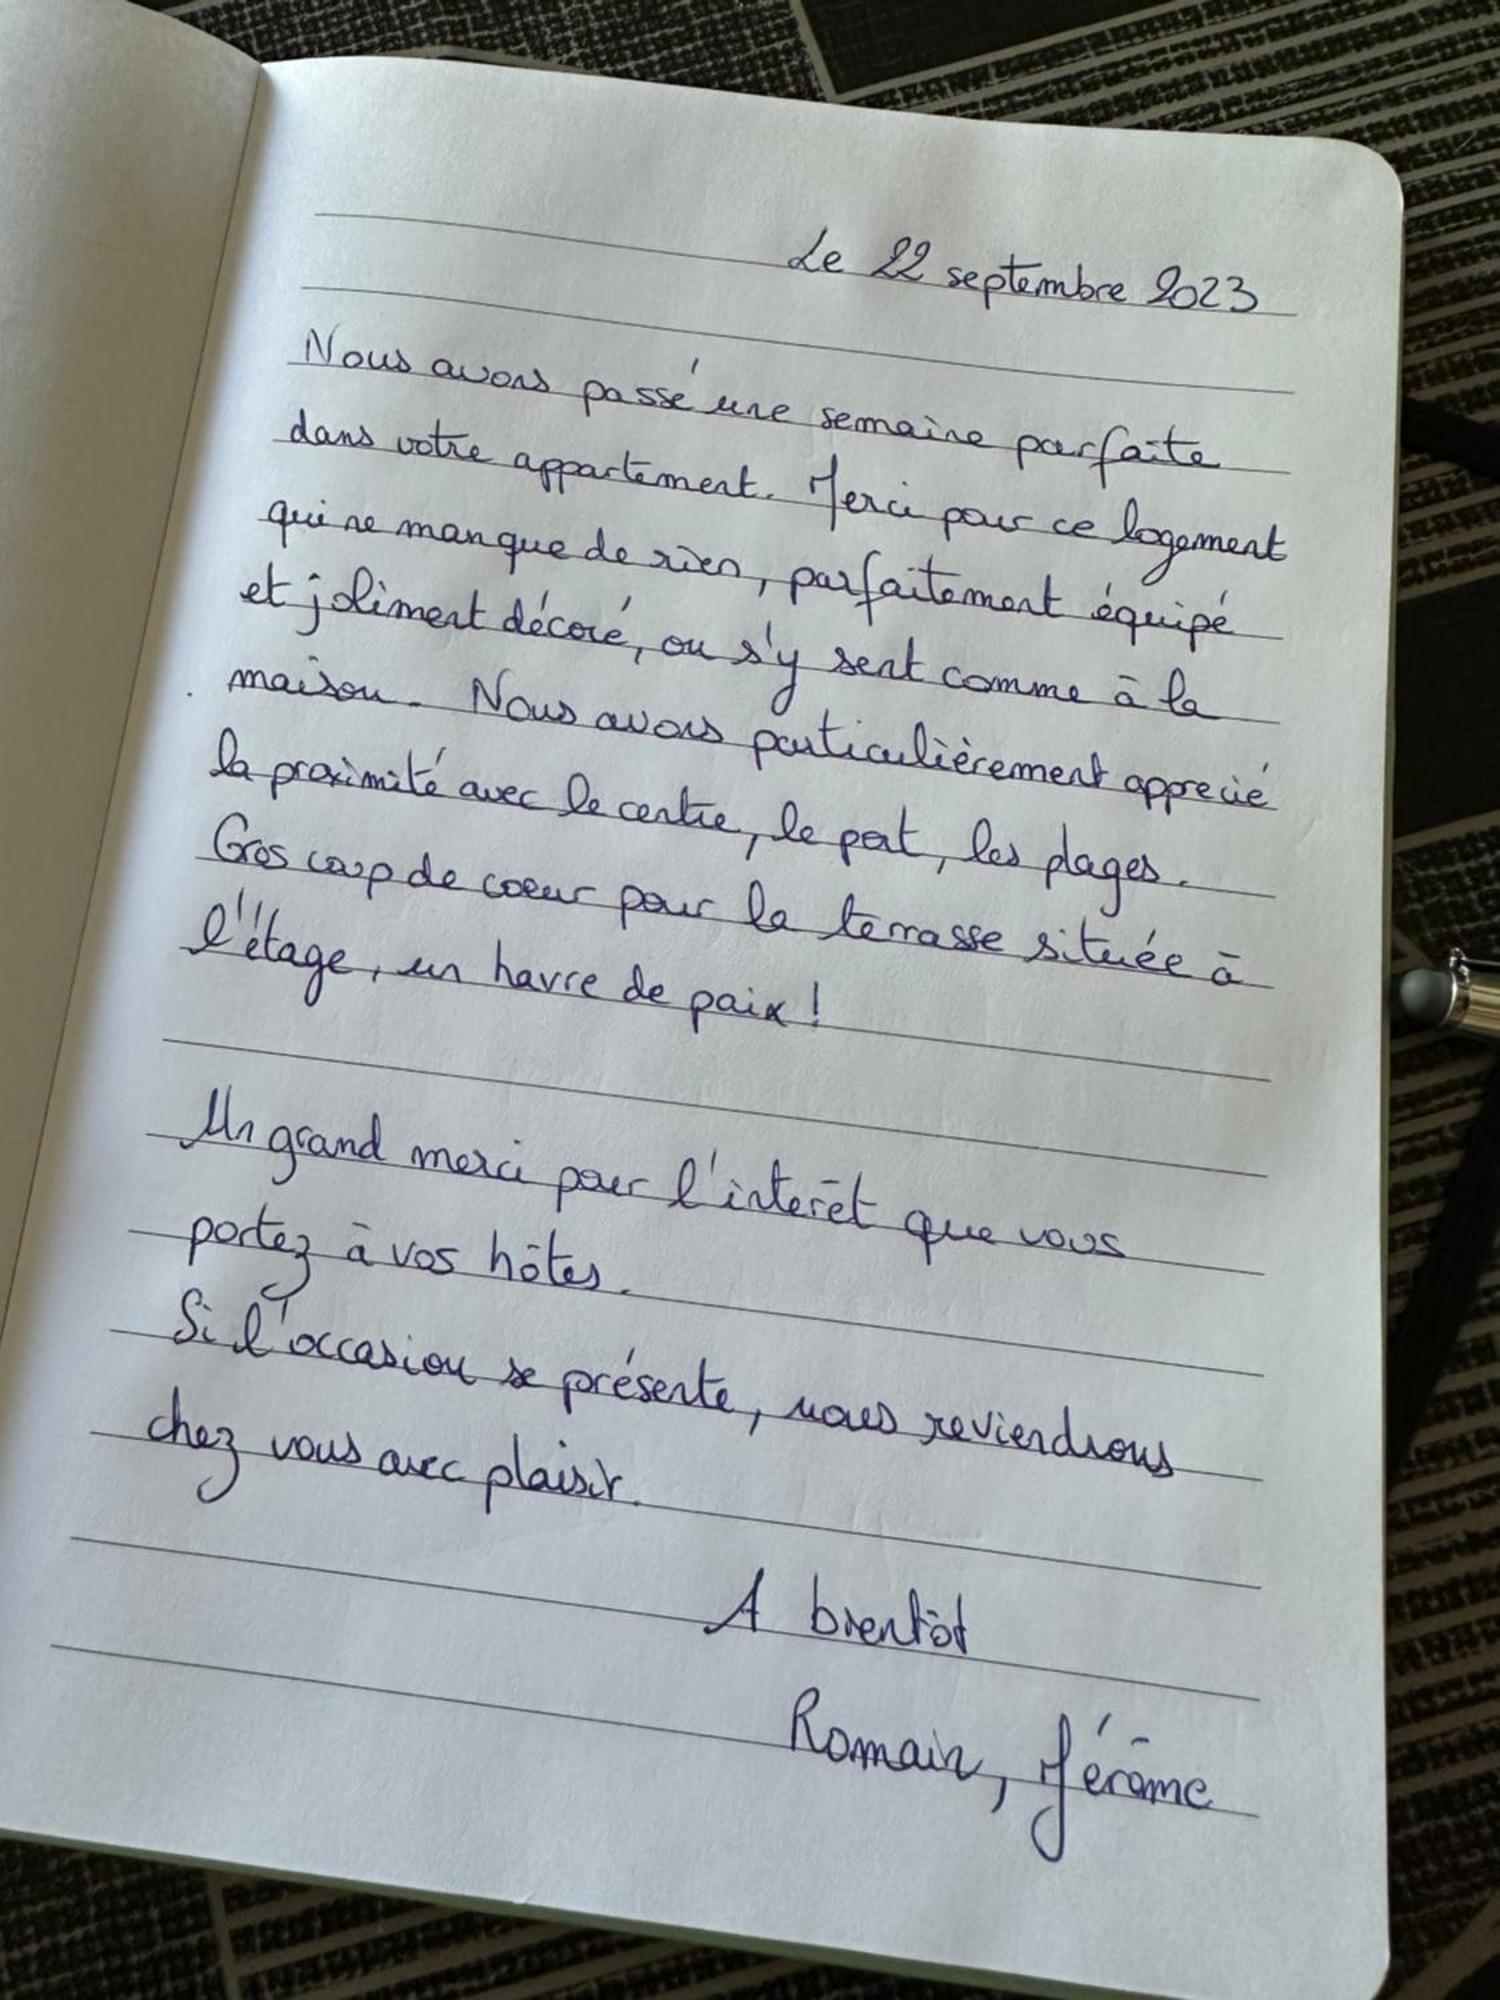 Le 22 septembre 2023
Nous avons passé une semaine parfaite
dans votre appartement. Merci pour ce logement
qui ne manque de rien, parfaitement équipé
et joliment décoré, on s'y sent comme à la
maison. Nous avons particulièrement apprecié
la proximité avec le centre, le port, les plages.
Gros coup de coeur pour la terrasse située à
l'étage, un havre de paix !
Un grand merci pour l'interêt que vous
portez à vos hôtes.
Si l'occasion se présente, nous reviendrons
chez vous avec plaisir.
A bientôt
Romain, Jérôme